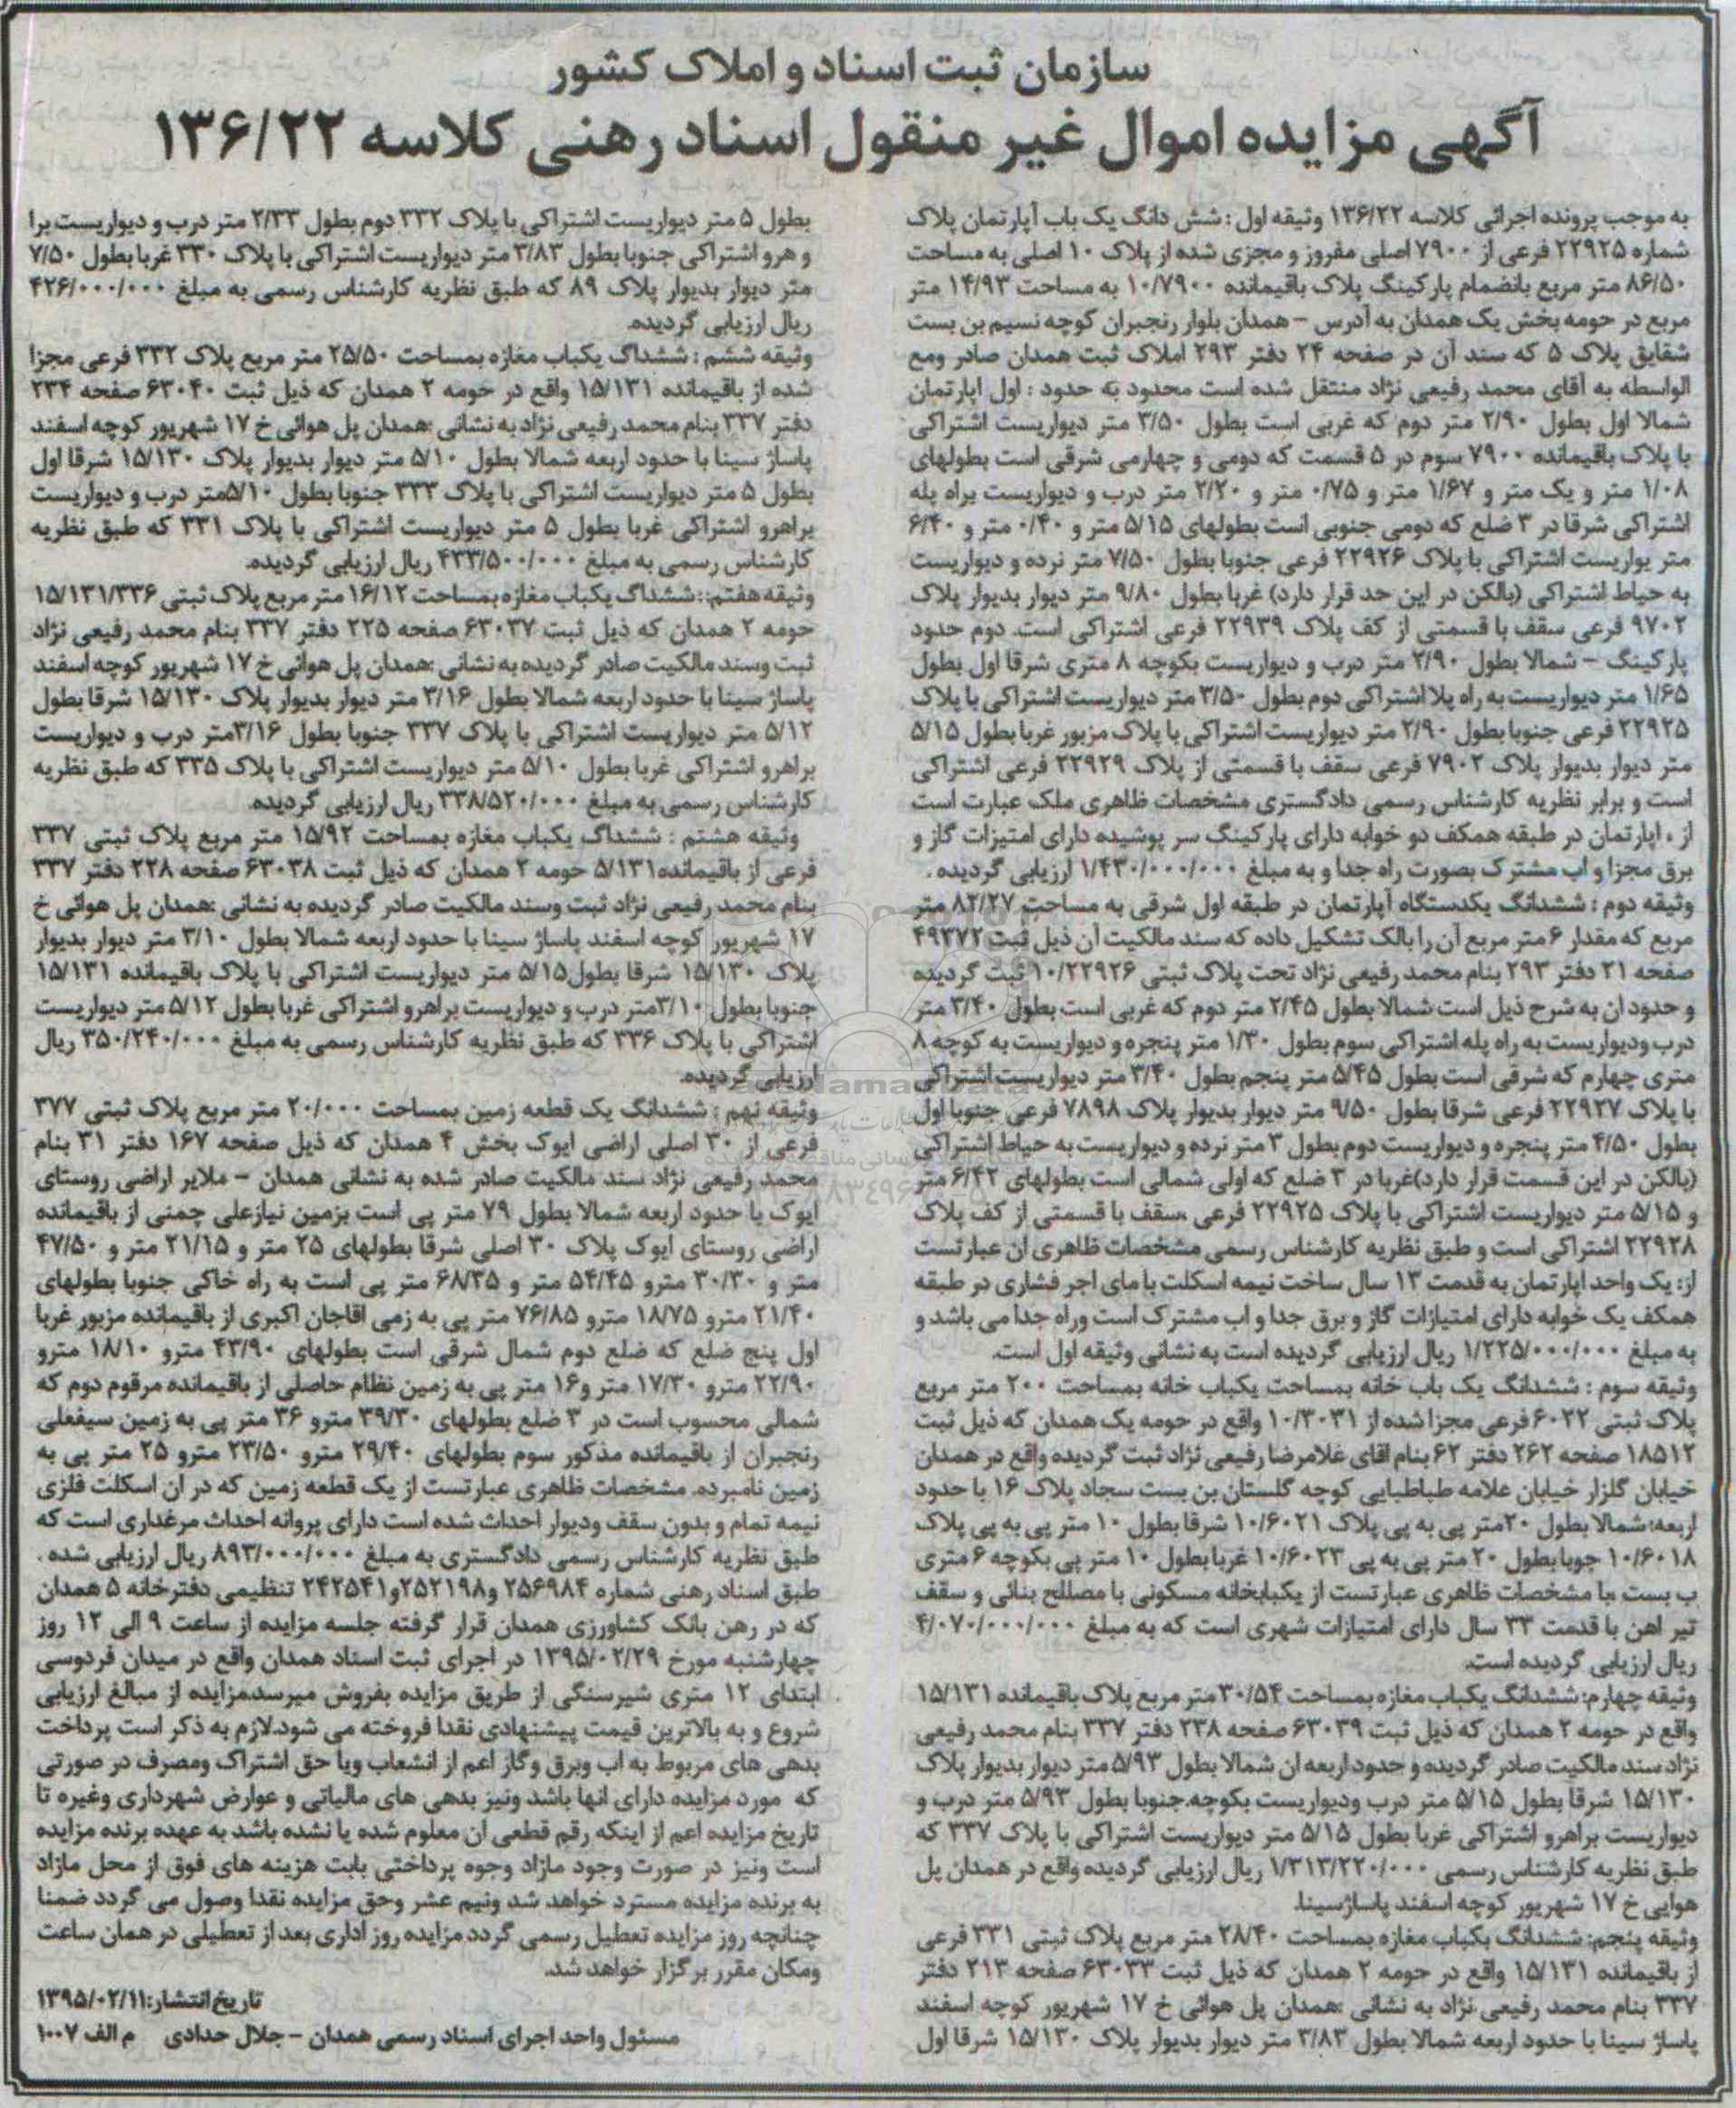 سازمان ثبت اسناد و املاک کشور
آگهی مزایده اموال غیر منقول اسناد رهنی کلاسه ۱۳۶/۲۲
به موجب پرونده اجرائی کلاسه ۱۳۶/۲۲ وثیقه اول : شش دانگ یک باب آپارتمان پلاک
شماره ۲۲۹۲۵ فرعی از ۷۹۰۰ اصلی مفروز و مجزی شده از پلاک ۱۰ اصلی به مساحت
۸۶/۵۰ متر مربع بانضمام پارکینگ پلاک باقیمانده ۱۰/۷۹۰۰ به مساحت ۱۴/۹۳ متر
مربع در حومه بخش یک همدان به آدرس - همدان بلوار رنجبران کوچه نسیم بن بست
شقایق پلاک ۵ که سند آن در صفحه ۲۴ دفتر ۲۹۳ املاک ثبت همدان صادر ومع
الواسطه به آقای محمد رفیعی نژاد منتقل شده است محدود به حدود : اول اپارتمان
شمالا اول بطول ۲/۹۰ متر دوم که غربی است بطول ۳/۵۰ متر دیواریست اشتراکی
با پلاک باقیمانده ۷۹۰۰ سوم در ۵ قسمت که دومی و چهارمی شرقی است بطولهای
۱/۰۸ متر و یک متر و ۱/۶۷ متر و ۰/۷۵ متر و ۲/۲۰ متر درب و دیواریست براه پله
اشتراکی شرقا در ۳ ضلع که دومی جنوبی است بطولهای ۵/۱۵ متر و ۰/۴۰ متر و ۶/۴۰
متر یواریست اشتراکی با پلاک ۲۲۹۲۶ فرعی جنوبا بطول ۷/۵۰ متر نرده و دیواریست
به حیاط اشتراکی (بالکن در این حد قرار دارد) غربا بطول ۹/۸۰ متر دیوار بدیوار پلاک
۹۷۰۲ فرعی سقف با قسمتی از کف پلاک ۲۲۹۳۹ فرعی اشتراکی است. دوم حدود
پارکینگ - شمالا بطول ۲/۹۰ متر درب و دیواریست بکوچه ۸ متری شرقا اول بطول
۱/۶۵ متر دیواریست به راه پلا اشتراکی دوم بطول ۳/۵۰ متر دیواریست اشتراکی با پلاک
۲۲۹۲۵ فرعی جنوبا بطول ۲/۹۰ متر دیواریست اشتراکی با پلاک مزبور غربا بطول ۵/۱۵
متر دیوار بدیوار پلاک ۷۹۰۲ فرعی سقف با قسمتی از پلاک ۲۲۹۲۹ فرعی اشتراکی
است و برابر نظریه کارشناس رسمی دادگستری مشخصات ظاهری ملک عبارت است
از ، اپارتمان در طبقه همکف دو خوابه دارای پارکینگ سر پوشیده دارای امتیزات گاز و
برق مجزا و اب مشترک بصورت راه جدا و به مبلغ ۱/۴۳۰/۰۰۰/۰۰۰ ارزیابی گردیده .
وثیقه دوم : ششدانگ یکدستگاه آپارتمان در طبقه اول شرقی به مساحت ۸۲/۲۷ متر
مربع که مقدار ۶ متر مربع آن را بالک تشکیل داده که سند مالکیت آن ذیل ثبت ۴۹۳۷۲
صفحه ۲۱ دفتر ۲۹۳ بنام محمد رفیعی نژاد تحت پلاک ثبتی ۱۰/۲۲۹۲۶ ثبت گردیده
و حدود ان به شرح ذیل است شمالا بطول ۲/۴۵ متر دوم که غربی است بطول ۳/۴۰ متر
درب ودیواریست به راه پله اشتراکی سوم بطول ۱/۳۰ متر پنجره و دیواریست به کوچه ۸
متری چهارم که شرقی است بطول ۵/۴۵ متر پنجم بطول ۳/۴۰ متر دیواریست اشتراکی
با پلاک ۲۲۹۲۷ فرعی شرقا بطول ۹/۵۰ متر دیوار بدیوار پلاک ۷۸۹۸ فرعی جنوبا اول
بطول ۴/۵۰ متر پنجره و دیواریست دوم بطول ۳ متر نرده و دیواریست به حیاط اشتراکی
(بالکن در این قسمت قرار دارد)غربا در ۳ ضلع که اولی شمالی است بطولهای ۶/۴۲ متر
و ۵/۱۵ متر دیواریست اشتراکی با پلاک ۲۲۹۲۵ فرعی ،سقف با قسمتی از کف پلاک
۲۲۹۲۸ اشتراکی است و طبق نظریه کارشناس رسمی مشخصات ظاهری ان عبارتست
از: یک واحد اپارتمان به قدمت ۱۳ سال ساخت نیمه اسکلت با مای اجر فشاری در طبقه
همکف یک خوابه دارای امتیازات گاز و برق جدا و اب مشترک است وراه جدا می باشد و
به مبلغ ۱/۲۲۵/۰۰۰/۰۰۰ ریال ارزیابی گردیده است به نشانی وثیقه اول است.
وثیقه سوم : ششدانگ یک باب خانه بمساحت یکباب خانه بمساحت ۲۰۰ متر مربع
پلاک ثبتی ۶۰۲۲ فرعی مجزا شده از ۱۰/۳۰۳۱ واقع در حومه یک همدان که ذیل ثبت
۱۸۵۱۲ صفحه ۲۶۲ دفتر ۶۲ بنام اقای غلامرضا رفیعی نژاد ثبت گردیده واقع در همدان
خیابان گلزار خیابان علامه طباطبایی کوچه گلستان بن بست سجاد پلاک ۱۶ با حدود
اربعه: شمالا بطول ۲۰متر پی به پی پلاک ۱۰/۶۰۲۱ شرقا بطول ۱۰ متر پی به پی پلاک
۱۰/۶۰۱۸ جوبا بطول ۲۰ متر پی به پی ۱۰/۶۰۲۳ غربا بطول ۱۰ متر پی بکوچه ۶ متری
ب بست ،با مشخصات ظاهری عبارتست از یکبابخانه مسکونی با مصللح بنائی و سقف
تیر اهن با قدمت ۳۳ سال دارای امتیازات شهری است که به مبلغ ۴/۰۷۰/۰۰۰/۰۰۰
ریال ارزیابی گردیده است.
وثیقه چهارم: ششدانگ یکباب مغازه بمساحت ۳۰/۵۴ متر مربع پلاک باقیمانده ۱۵/۱۳۱
واقع در حومه ۲ همدان که ذیل ثبت ۶۳۰۳۹ صفحه ۲۳۸ دفتر ۳۳۷ بنام محمد رفیعی
نژاد سند مالکیت صادر گردیده و حدود اربعه ان شمالا بطول ۵/۹۳ متر دیوار بدیوار پلاک
۱۵/۱۳۰ شرقا بطول ۵/۱۵ متر درب ودیواریست بکوچه.جنوبا بطول ۵/۹۳ متر درب و
دیواریست براهرو اشتراکی غربا بطول ۵/۱۵ متر دیواریست اشتراکی با پلاک ۳۳۷ که
طبق نظریه کارشناس رسمی ۱/۳۱۳/۲۲۰/۰۰۰ ریال ارزیابی گردیده واقع در همدان پل
هوایی خ ۱۷ شهریور کوچه اسفند پاساژسینا.
وثیقه پنجم: ششدانگ بکباب مغازه بمساحت ۲۸/۴۰ متر مربع پلاک ثبتی ۳۳۱ فرعی
از باقیمانده ۱۵/۱۳۱ واقع در حومه ۲ همدان که ذیل ثبت ۶۳۰۳۳ صفحه ۲۱۳ دفتر
۳۳۷ بنام محمد رفیعی نژاد به نشانی :همدان پل هوائی خ ۱۷ شهریور کوچه اسفند
پاساژ سینا با حدود اربعه شمالا بطول ۳/۸۳ متر دیوار بدیوار پلاک ۱۵/۱۳۰ شرقا اول
بطول ۵ متر دیواریست اشتراکی با پلاک ۳۳۲ دوم بطول ۲/۳۳ متر درب و دیواریست برا
و هرو اشتراکی جنوبا بطول ۳/۸۳ متر دیواریست اشتراکی با پلاک ۳۳۰ غربا بطول ۷/۵۰
متر دیوار بدیوار پلاک ۸۹ که طبق نظریه کارشناس رسمی به مبلغ ۴۲۶/۰۰۰/۰۰۰
ریال ارزیابی گردیده.
وثیقه ششم : ششداگ یکباب مغازه بمساحت ۲۵/۵۰ متر مربع پلاک ۳۳۲ فرعی مجزا
شده از باقیمانده ۱۵/۱۳۱ واقع در حومه ۲ همدان که ذیل ثبت ۶۳۰۴۰ صفحه ۲۳۴
دفتر ۳۳۷ بنام محمد رفیعی نژاد به نشانی :همدان پل هوائی خ ۱۷ شهریور کوچه اسفند
پاساژ سینا با حدود اربعه شمالا بطول ۵/۱۰ متر دیوار بدیوار پلاک ۱۵/۱۳۰ شرقا اول
بطول ۵ متر دیواریست اشتراکی با پلاک ۳۳۳ جنوبا بطول ۵/۱۰متر درب و دیواریست
براهرو اشتراکی غربا بطول ۵ متر دیواریست اشتراکی با پلاک ۳۳۱ که طبق نظریه
کارشناس رسمی به مبلغ ۴۳۳/۵۰۰/۰۰۰ ریال ارزیابی گردیده.
وثیقه هفتم: :ششداگ یکباب مغازه بمساحت ۱۶/۱۲ متر مربع پلاک ثبتی ۱۵/۱۳۱/۳۳۶
حومه ۲ همدان که ذیل ثبت ۶۳۰۳۷ صفحه ۲۲۵ دفتر ۳۳۷ بنام محمد رفیعی نژاد
ثبت وسند مالکیت صادر گردیده به نشانی :همدان پل هوائی خ ۱۷ شهریور کوچه اسفند
پاساژ سینا با حدود اربعه شمالا بطول ۳/۱۶ متر دیوار بدیوار پلاک ۱۵/۱۳۰ شرقا بطول
۵/۱۲ متر دیواریست اشتراکی با پلاک ۳۳۷ جنوبا بطول ۳/۱۶متر درب و دیواریست
براهرو اشتراکی غربا بطول ۵/۱۰ متر دیواریست اشتراکی با پلاک ۳۳۵ که طبق نظریه
کارشناس رسمی به مبلغ ۳۳۸/۵۲۰/۰۰۰ ریال ارزیابی گردیده.
وثیقه هشتم : ششداگ یکباب مغازه بمساحت ۱۵/۹۲ متر مربع پلاک ثبتی ۳۳۷
فرعی از باقیمانده۵/۱۳۱ حومه ۲ همدان که ذیل ثبت ۶۳۰۳۸ صفحه ۲۲۸ دفتر ۳۳۷
بنام محمد رفیعی نژاد ثبت وسند مالکیت صادر گردیده به نشانی :همدان پل هوائی خ
۱۷ شهریور کوچه اسفند پاساژ سینا با حدود اربعه شمالا بطول ۳/۱۰ متر دیوار بدیوار
پلاک ۱۵/۱۳۰ شرقا بطول۵/۱۵ متر دیواریست اشتراکی با پلاک باقیمانده ۱۵/۱۳۱
جنوبا بطول ۳/۱۰متر درب و دیواریست براهرو اشتراکی غربا بطول ۵/۱۲ متر دیواریست
اشتراکی با پلاک ۳۳۶ که طبق نظریه کارشناس رسمی به مبلغ ۳۵۰/۲۴۰/۰۰۰ ریال
ارزیابی گردیده.
وثیقه نهم : ششدانگ یک قطعه زمین بمساحت ۲۰/۰۰۰ متر مربع پلاک ثبتی ۳۷۷
فرعی از ۳۰ اصلی اراضی ایوک بخش ۴ همدان که ذیل صفحه ۱۶۷ دفتر ۳۱ بنام
محمد رفیعی نژاد سند مالکیت صادر شده به نشانی همدان - ملایر اراضی روستای
ایوک با حدود اربعه شمالا بطول ۷۹ متر پی است بزمین نیازعلی چمنی از باقیمانده
اراضی روستای ایوک پلاک ۳۰ اصلی شرقا بطولهای ۲۵ متر و ۲۱/۱۵ متر و ۴۷/۵۰
متر و ۳۰/۳۰ مترو ۵۴/۴۵ متر و ۶۸/۳۵ متر پی است به راه خاکی جنوبا بطولهای
۲۱/۴۰ مترو ۱۸/۷۵ مترو ۷۶/۸۵ متر پی به زمی اقاجان اکبری از باقیمانده مزبور غربا
اول پنج ضلع که ضلع دوم شمال شرقی است بطولهای ۴۳/۹۰ مترو ۱۸/۱۰ مترو
۲۲/۹۰ مترو ۱۷/۳۰ متر و۱۶ متر پی به زمین نظام حاصلی از باقیمانده مرقوم دوم که
شمالی محسوب است در ۳ ضلع بطولهای ۳۹/۳۰ مترو ۳۶ متر پی به زمین سیفعلی
رنجبران از باقیمانده مذکور سوم بطولهای ۲۹/۴۰ مترو ۲۳/۵۰ مترو ۲۵ متر پی به
زمین نامبرده. مشخصات ظاهری عبارتست از یک قطعه زمین که در ان اسکلت فلزی
نیمه تمام و بدون سقف ودیوار احداث شده است دارای پروانه احداث مرغداری است که
طبق نظریه کارشناس رسمی دادگستری به مبلغ ۸۹۳/۰۰۰/۰۰۰ ریال ارزیابی شده .
طبق اسناد رهنی شماره ۲۵۶۹۸۴ و۲۵۲۱۹۸و۲۴۲۵۴۱ تنظیمی دفترخانه ۵ همدان
که در رهن بانک کشاورزی همدان قرار گرفته جلسه مزایده از ساعت ۹ الی ۱۲ روز
چهارشنبه مورخ ۱۳۹۵/۰۲/۲۹ در اجرای ثبت اسناد همدان واقع در میدان فردوسی
ابتدای ۱۲ متری شیرسنگی از طریق مزایده بفروش میرسد.مزایده از مبالغ ارزیابی
شروع و به بالاترین قیمت پیشنهادی نقدا فروخته می شود.لازم به ذکر است پرداخت
بدهی های مربوط به اب وبرق وگاز اعم از انشعاب ویا حق اشتراک ومصرف در صورتی
که مورد مزایده دارای انها باشد ونیز بدهی های مالیاتی و عوارض شهرداری وغیره تا
تاریخ مزایده اعم از اینکه رقم قطعی ان معلوم شده یا نشده باشد به عهده برنده مزایده
است ونیز در صورت وجود مازاد وجوه پرداختی بابت هزینه های فوق از محل مازاد
به برنده مزایده مسترد خواهد شد ونیم عشر وحق مزایده نقدا وصول می گردد ضمنا
چنانچه روز مزایده تعطیل رسمی گردد مزایده روز اداری بعد از تعطیلی در همان ساعت
ومکان مقرر برگزار خواهد شد.
تاریخ انتشار:۱۳۹۵/۰۲/۱۱
مسئول واحد اجرای اسناد رسمی همدان - جلال حدادی م الف ۱۰۰۷